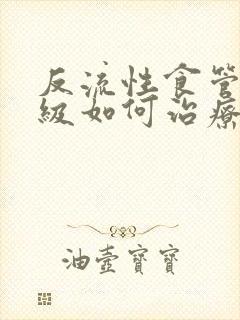 反流性食管
級如何治療
油壺寶寶